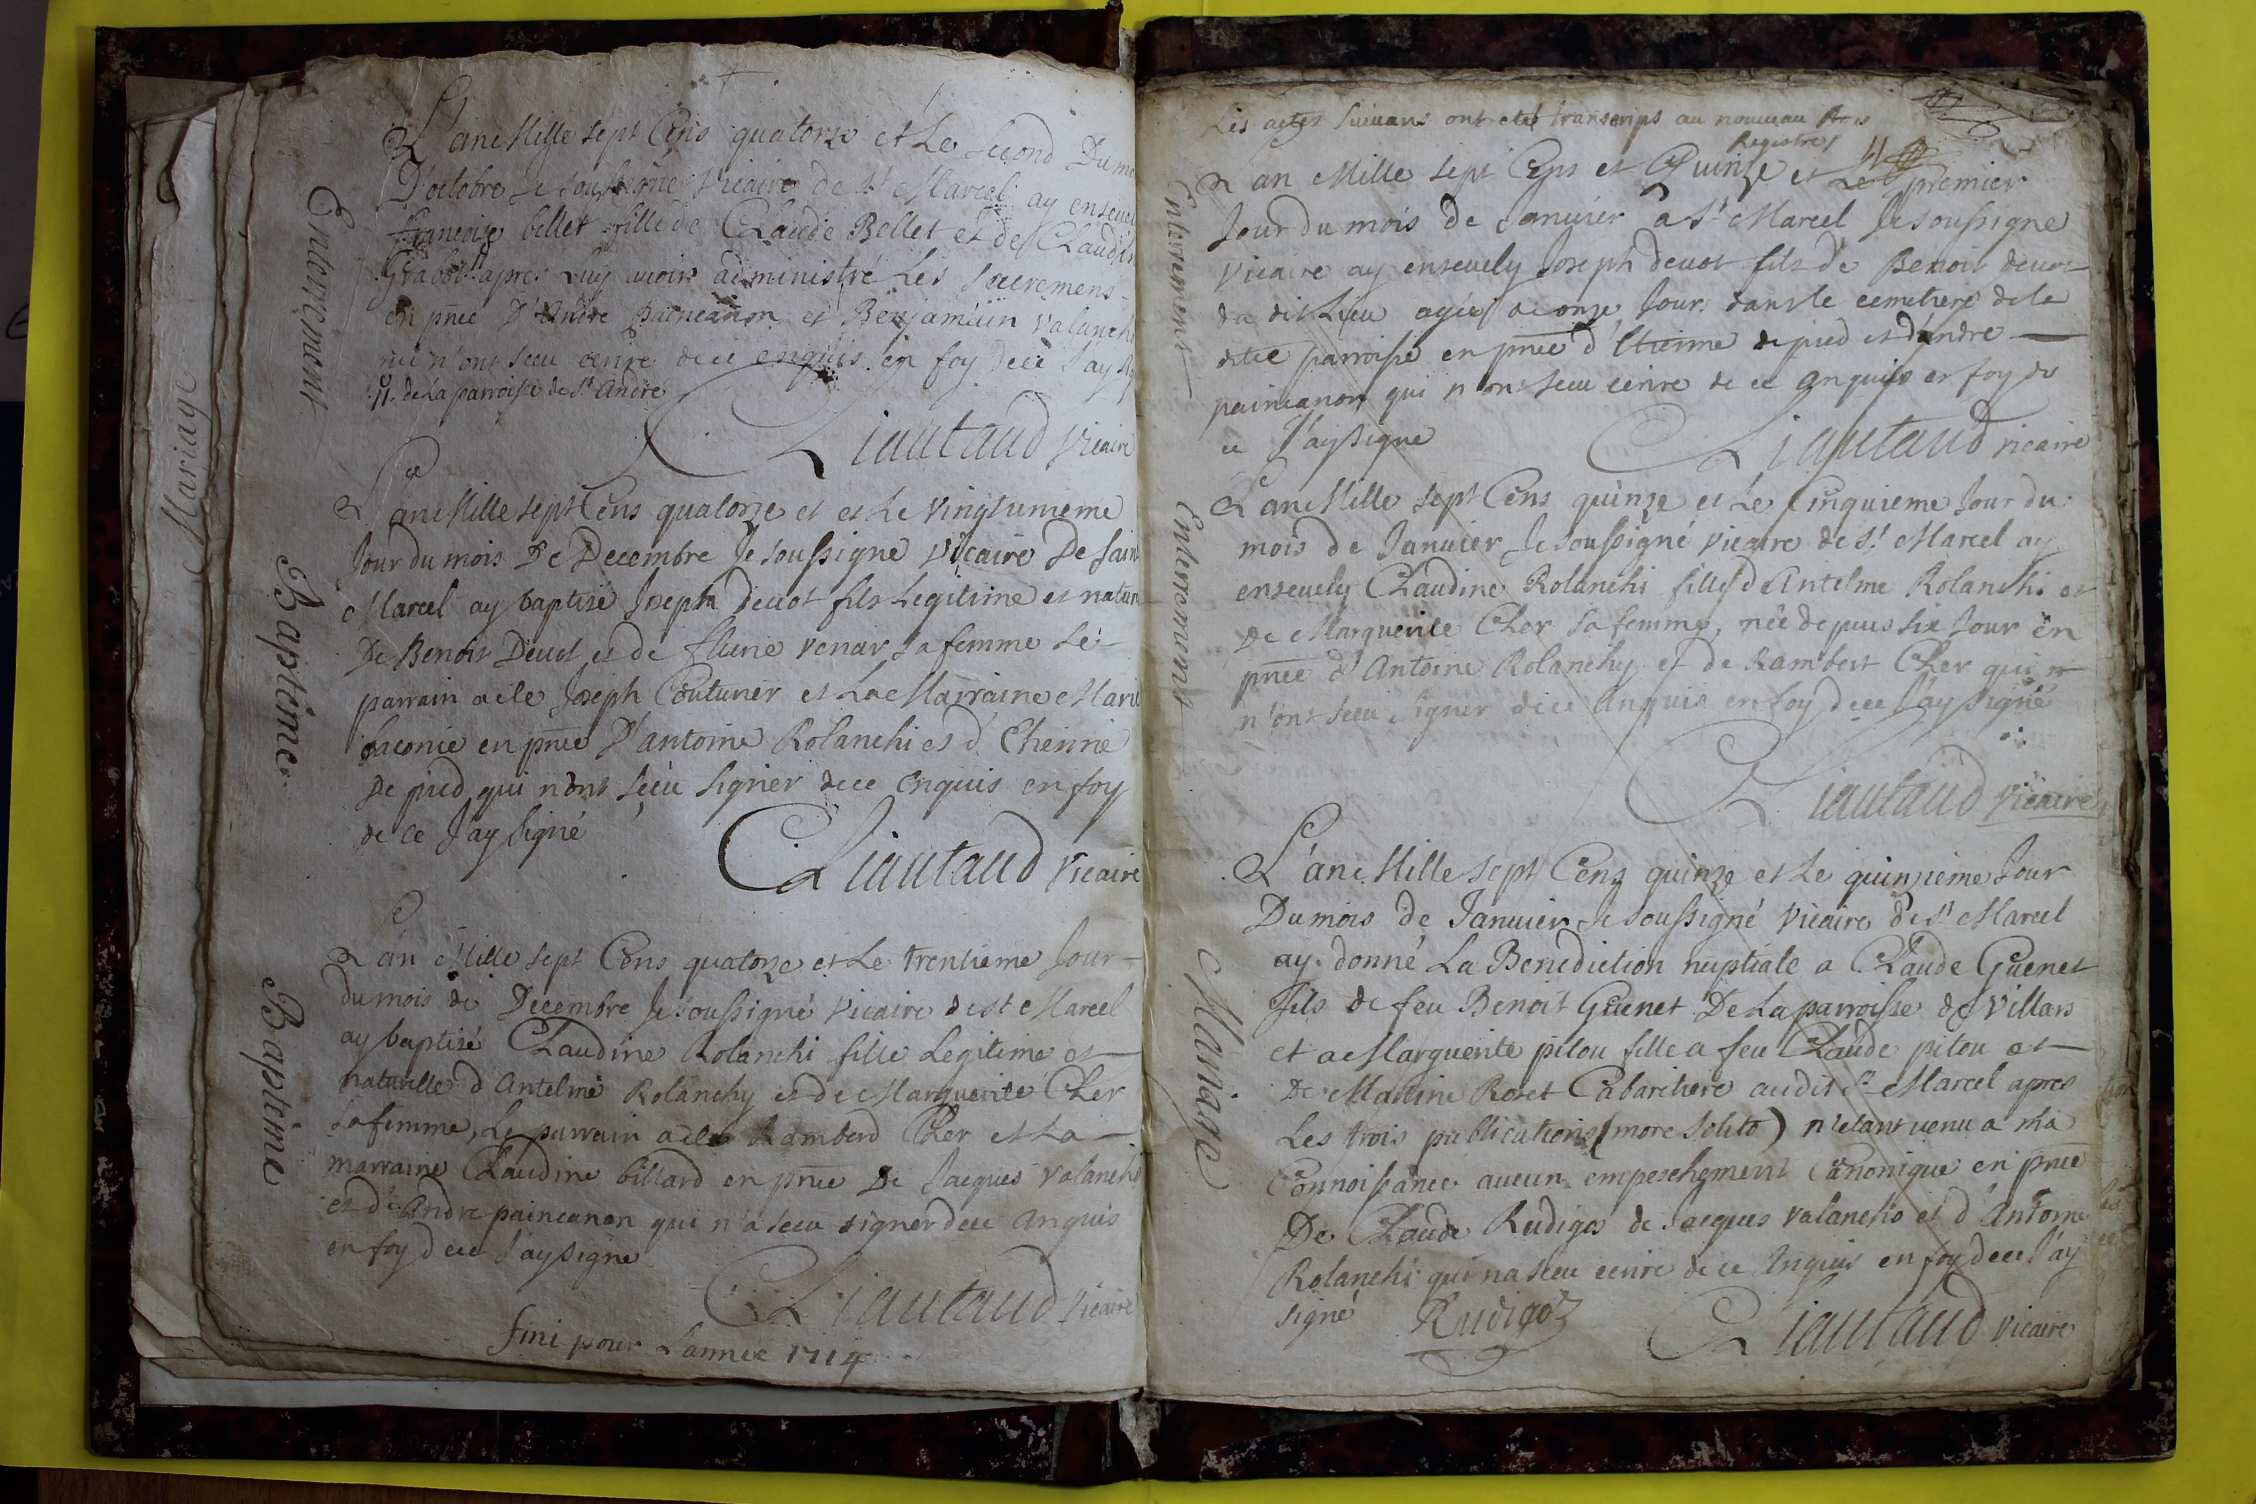 Mariage
Enterrement
L'an Mille sept Cens quatorze et Le second Du mo
D'octobre Je soussigné Vicaire de St Marcel ay enseve
francoise bellet fille de Claude Bellet et de Claudin
Grabot apres Luy avoir administré Les sacremens
en pnce D'André paincanon et Benjamin valanch
qui n'ont sceu ecrire de ce enquis en foy de ce J'ay
de la parroisse de St André
Liautaud vicaire
Baptime
L'an Mille sept Cens quatorze et et Le vingtumeme
Jour du mois De Decembre Je soussigné vicaire De sain
Marcel ay baptisé Joseph devot fils Legitime et natur
De Benoit Devot et de venar sa femme Le
parrain a ete Joseph Couturier et La Marraine Mari
Jaconie en pnce D'antoine Rolanchi et d'Etienne
De pied qui n'ont sceu signer de ce enquis en foy
de ce J'ay signé
Liautaud vicaire
Bapteme
L'an Mille sept Cens quatorze et Le trentieme Jour
du mois de Decembre Je soussigné vicaire de st Marcel
ay baptisé Claudine Rolanchi fille Legitime et
naturelle d'Antelme Rolanchy et de Marguerite Cher
sa femme, Le parrain a ete Ramberd Cher et La
marraine Claudine billard en pnce De Jacques valanchi
et d'Andre paincanon qui n'a sceu signer de ce anquis
en foy de ce J'ay signe
Liautaud vicaire
fini pour L'année 1714
Les actes suivans ont eté transcrips au nouveau
Registre
Enterement
L'an Mille sept Cens et Quinze et Le premier
Jour du mois de Janvier a St Marcel Je soussigne
vicaire ay ensevely Joseph devot fils de Benoit devot
du dit Lieu agée de onze Jour dans le cemetiere de la
ditte parroisse en pnce d'Etienne de pied et d'andre
paincanon qui n'ont sceu ecrire de ce anquis en foy de
ce J'ay signe
Liautaud vicaire
Enterement
L'an Mille sept Cens quinze et Le Cinquieme Jour du
mois de Janvier Je soussigné vicaire de St Marcel ay
ensevely Claudine Rolanchi fille d'Antelme Rolanchi et
De Marguerite Cher sa femme, née depuis six Jour en
pnce d'Antoine Rolanchy et de Rambert Cher qui n
n'ont sceu signer de ce anquis en foy de ce J'ay signé
Liautaud vicaire
Mariage
L'an Mille sept Cens quinze et Le quinzieme Jour
Du mois de Janvier Je soussigné vicaire de St Marcel
ay donné La Benediction nuptiale a Claude Guenet
fils de feu Benoit Guenet De La parroisse de Villars
et a Marguerite pitou fille a feu Claude pitou et
De Martine Roset Cabaretiere audit St Marcel apres
Les trois publications (more solito) n'etant venu a ma
Connoissance aucun empeschement Canonique en pnce
De Claude Rudigos de Jacques valancho et d'Antoine
Rolanchi qui n'a sceu ecrire de ce Anquis en foy de ce J'ay
signé Rudigoz Liautaud vicaire